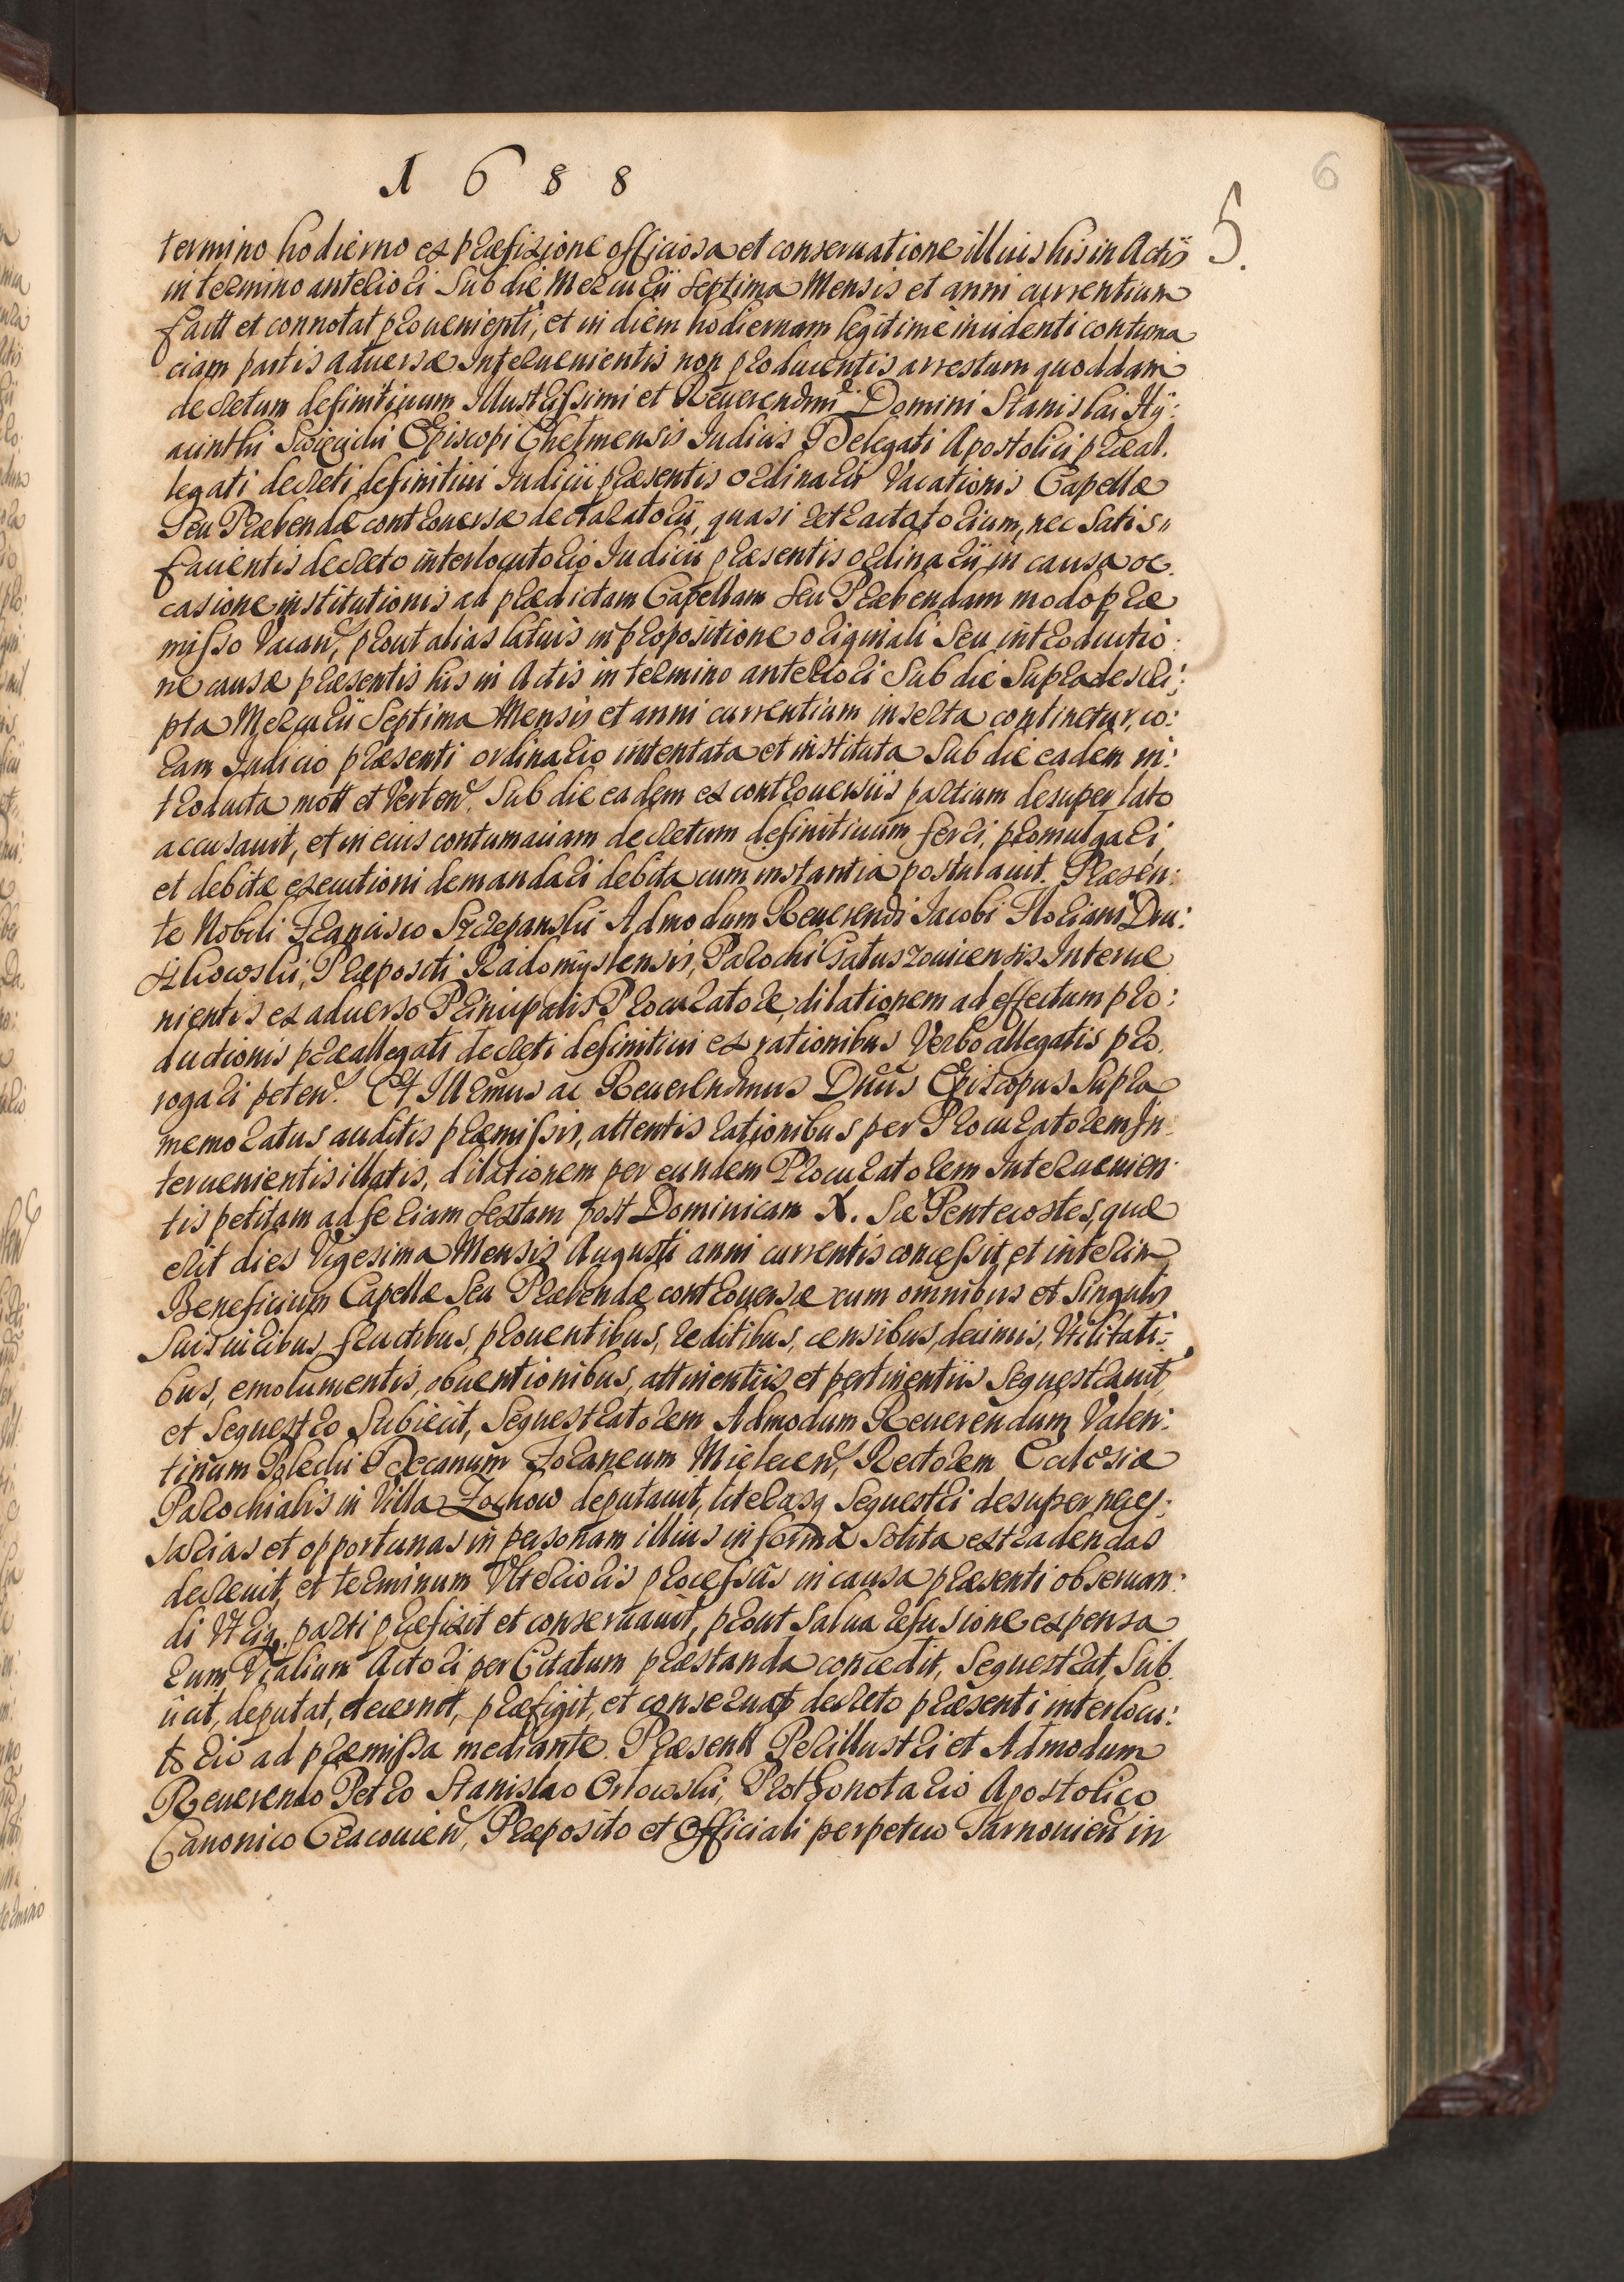 1688
6
5.
termino hodierno ex præfixione officiosa et conseruatione illius his in Actis
in termino anteriori Sub die Mercurii Septima Mensis et anni currentium
factt et connotat prouenienti, et in diem hodiernam legitime incidenti contuma
ciam partis aduersæ Interuenientis non producentis arrestum quoddam
decretum definitiuum Illustrissimi et Reuerendmi Domini Stanislai Hy:
acinthi Swięcicki Episcopi Chelmensis Iudicis Delegati Apostolici præal.
legati decreti definitiui Iudicii præsentis ordinarii Vacationis Capellæ
Seu Præbendæ controuersæ declaratorii, quasi retractatorium, nec Satis"
facientis decreto interlocutorio Iudicii præsentis ordinarii in causa oc.
casione institutionis ad prædictam Capellam Seu Præbendam modo præ
misso Vacan, prout alias latius in propositione originali Seu introductio:
ne causæ præsentis his in Actis in termino anteriori Sub die Supradescri:
pta Mercurii Septima Mensis et anni currentium inserta continetur, co:
ram Iudicio præsenti ordinario intentata et instituta Sub die eadem in:
troducta mott et Verten. Sub die eadem ex controuersiis partium desuper lato
accusauit, et in eius contumaciam decretum definitiuum ferri, promulgari,
et debitæ executioni demandari debita cum instantia postulauit. Præsen:
te Nobili Francisco Szczepanski Admodum Reuerendi Iacobi Floriani Dru:
szkowski, Præpositi Radomyslensis, Parochi Gatuszouicensis Interue
nientis ex aduerso Principalis Procuratore, dilationem ad effectum pro:
ductionis præallegati decreti definitiui ex rationibus Verbo allegatis pro.
rogari peten. Et Illrmus ac Reuerendmus Dnus Episcopus Supra
memoratus auditis præmissis, attentis rationibus per Procuratorem In
teruenientis illatis, dilationem per eundem Procuratorem Interuenien:
tis petitam ad feriam sextam post Dominicam X. Sæ Pentecostes, quæ
erit dies Vigesima Mensis Augusti anni currentis concessit, et interim
Beneficium Capellæ Seu Præbendæ controuersæ cum omnibus et Singulis
Suis iuribus, fructibus, prouentibus, reditibus, censibus, decimis, Vtilitati:
bus, emolumentis, obuentionibus, attinentiis et pertinentiis Sequestrauit,
et Sequestro Subiecit, Sequestratorem Admodum Reuerendum Valen:
tinum Decanum Foraneum Mielecen, Rectorem Ecclesiæ
Parochialis in Villa deputauit, literasq Sequestri desuper neces:
sarias et opportunas in personam illius in forma Solita extradendas
decreuit, et terminum Vlterioris processus in causa præsenti obseruan:
di Vtriq. parti præfixit et conseruauit, prout Salua refusione expensa
rum Vialium Actori per Citatum præstanda concedit, Sequestrat, Sub
iicit, deputat, decernit, præfigit, et conseruat decreto præsenti interlocu:
torio ad præmissa mediante. Præsentt Perillustri et Admodum
Reuerendo Petro Stanislao Orłowski, Prothonotario Apostolico
Canonico Cracouien, Præposito et Officiali perpetuo Tarnouien in